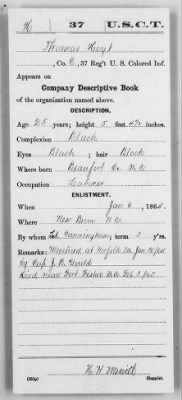 H | 37 | U.S.C.T.
Thomas Hoyt
, Co. E, 37 Reg't U. S. Colored Inf.
Appears on
Company Descriptive Book
of the organization named above.
DESCRIPTION.
Age 25 years; height 5 feet inches.
Complexion Black
Eyes Black; hair Black
Where born Beaufort Co. N.C.
Occupation Laborer
ENLISTMENT.
When Jan 6, 1864.
Where New Berne N.C.
By whom Cunningham; term 3 y'rs.
Remarks: Mustered at Norfolk Va. Jan 30/64.
by Capt J. R. Gould
Died near Fort Fisher N.C. Feb
H. W. Merrill
Copyist.